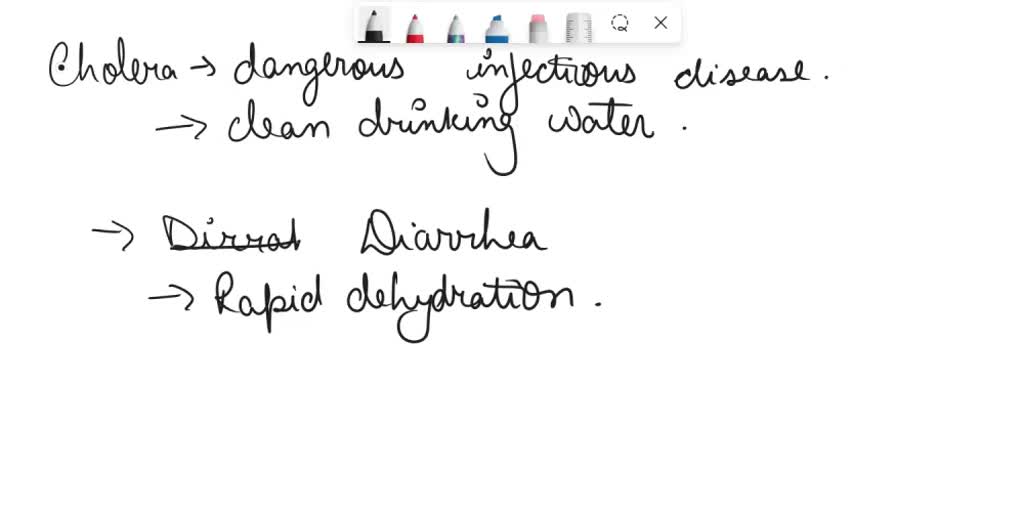 Cholera → dangerous infectious disease.
→ clean drinking water.
→ Dirrat Diarrhea
→ Rapid dehydration.